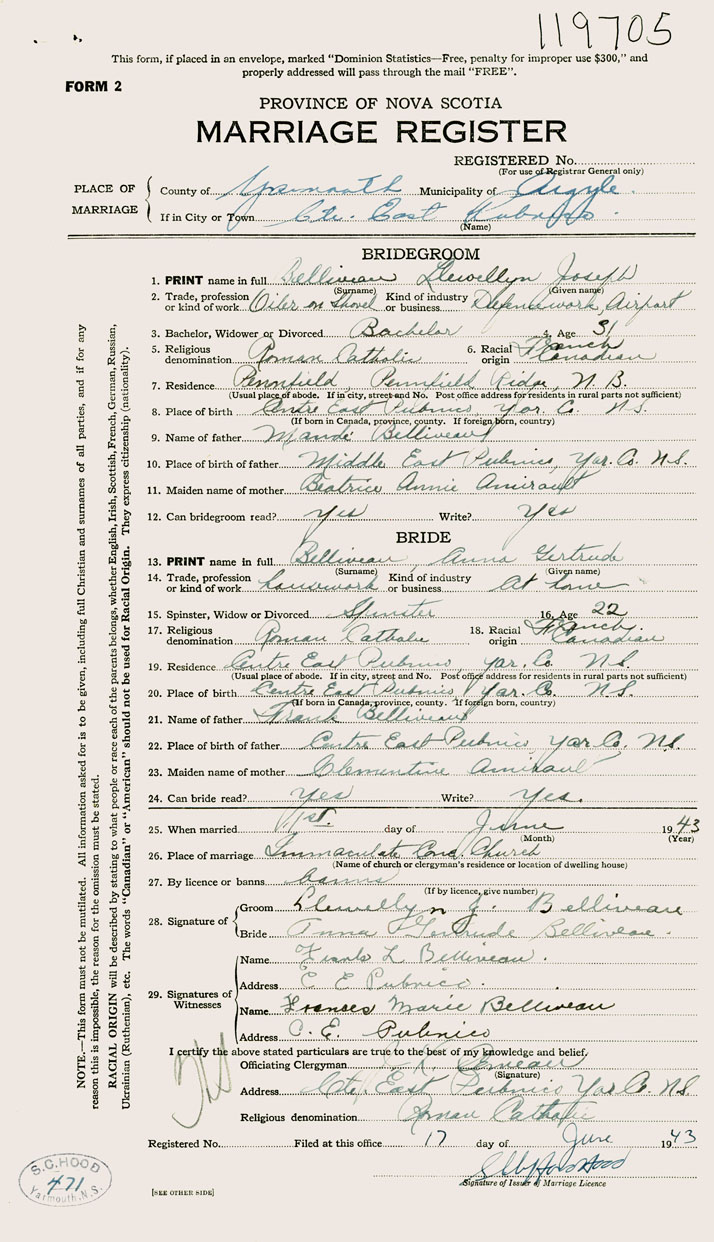 119705
This form, if placed in an envelope, marked "Dominion Statistics—Free, penalty for improper use $300," and
properly addressed will pass through the mail "FREE".
FORM 2
PROVINCE OF NOVA SCOTIA
MARRIAGE REGISTER
REGISTERED No.
(For use of Registrar General only)
PLACE OF MARRIAGE
County of Yarmouth Municipality of Argyle.
If in City or Town Ctr. East Pubnico.
(Name)
BRIDEGROOM
1. PRINT name in full Belliveau Llewellyn Joseph
(Surname) (Given name)
2. Trade, profession or kind of work Oiler on Shovel Kind of industry or business Defence work, Airport
3. Bachelor, Widower or Divorced Bachelor 4. Age 31
5. Religious denomination Roman Catholic 6. Racial origin French Canadian
7. Residence Pennfield, Pennfield Ridge, N. B.
(Usual place of abode. If in city, street and No. Post office address for residents in rural parts not sufficient)
8. Place of birth Centre East Pubnico, Yar. Co. N.S.
(If born in Canada, province, county. If foreign born, country)
9. Name of father Mandé Belliveau
10. Place of birth of father Middle East Pubnico, Yar. Co. N.S.
11. Maiden name of mother Beatrice Annie Amirault
12. Can bridegroom read? Yes Write? Yes
BRIDE
13. PRINT name in full Belliveau, Anna Gertrude
(Surname) (Given name)
14. Trade, profession or kind of work housework Kind of industry or business At home
15. Spinster, Widow or Divorced Spinster 16. Age 22
17. Religious denomination Roman Catholic 18. Racial origin French Canadian
19. Residence Centre East Pubnico, Yar. Co. N.S.
(Usual place of abode. If in city, street and No. Post office address for residents in rural parts not sufficient)
20. Place of birth Centre East Pubnico, Yar. Co. N.S.
(If born in Canada, province, county. If foreign born, country)
21. Name of father Frank Belliveau
22. Place of birth of father Centre East Pubnico Yar Co. N.S.
23. Maiden name of mother Clementine Amirault
24. Can bride read? Yes Write? Yes.
25. When married 1st. day of June 1943
(Month) (Year)
26. Place of marriage Immaculate Conc. Church
(Name of church or clergyman's residence or location of dwelling house)
27. By licence or banns banns
(If by licence, give number)
28. Signature of
Groom Llewellyn J. Belliveau
Bride Anna Gertrude Belliveau.
29. Signatures of Witnesses
Name Frank L Belliveau.
Address C E Pubnico.
Name Frances Marie Belliveau
Address C. E. Pubnico
I certify the above stated particulars are true to the best of my knowledge and belief.
Officiating Clergyman
(Signature)
Address Ctr. East Pubnico Yar Co. N.S.
Religious denomination Roman Catholic
Registered No. Filed at this office 17 day of June 1943
Signature of Issuer of Marriage Licence
[SEE OTHER SIDE]
S. C. HOOD
471
Yarmouth, N.S.
NOTE.—This form must not be mutilated. All information asked for is to be given, including full Christian and surnames of all parties, and if for any
reason this is impossible, the reason for the omission must be stated.
RACIAL ORIGIN will be described by stating to what people or race each of the parents belongs, whether English, Irish, Scottish, French, German, Russian,
Ukrainian (Ruthenian), etc. The words "Canadian" or "American" should not be used for Racial Origin. They express citizenship (nationality).